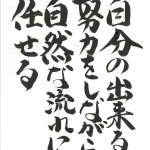 自分の出来る
努力をしながら
自然な流れに
任せる